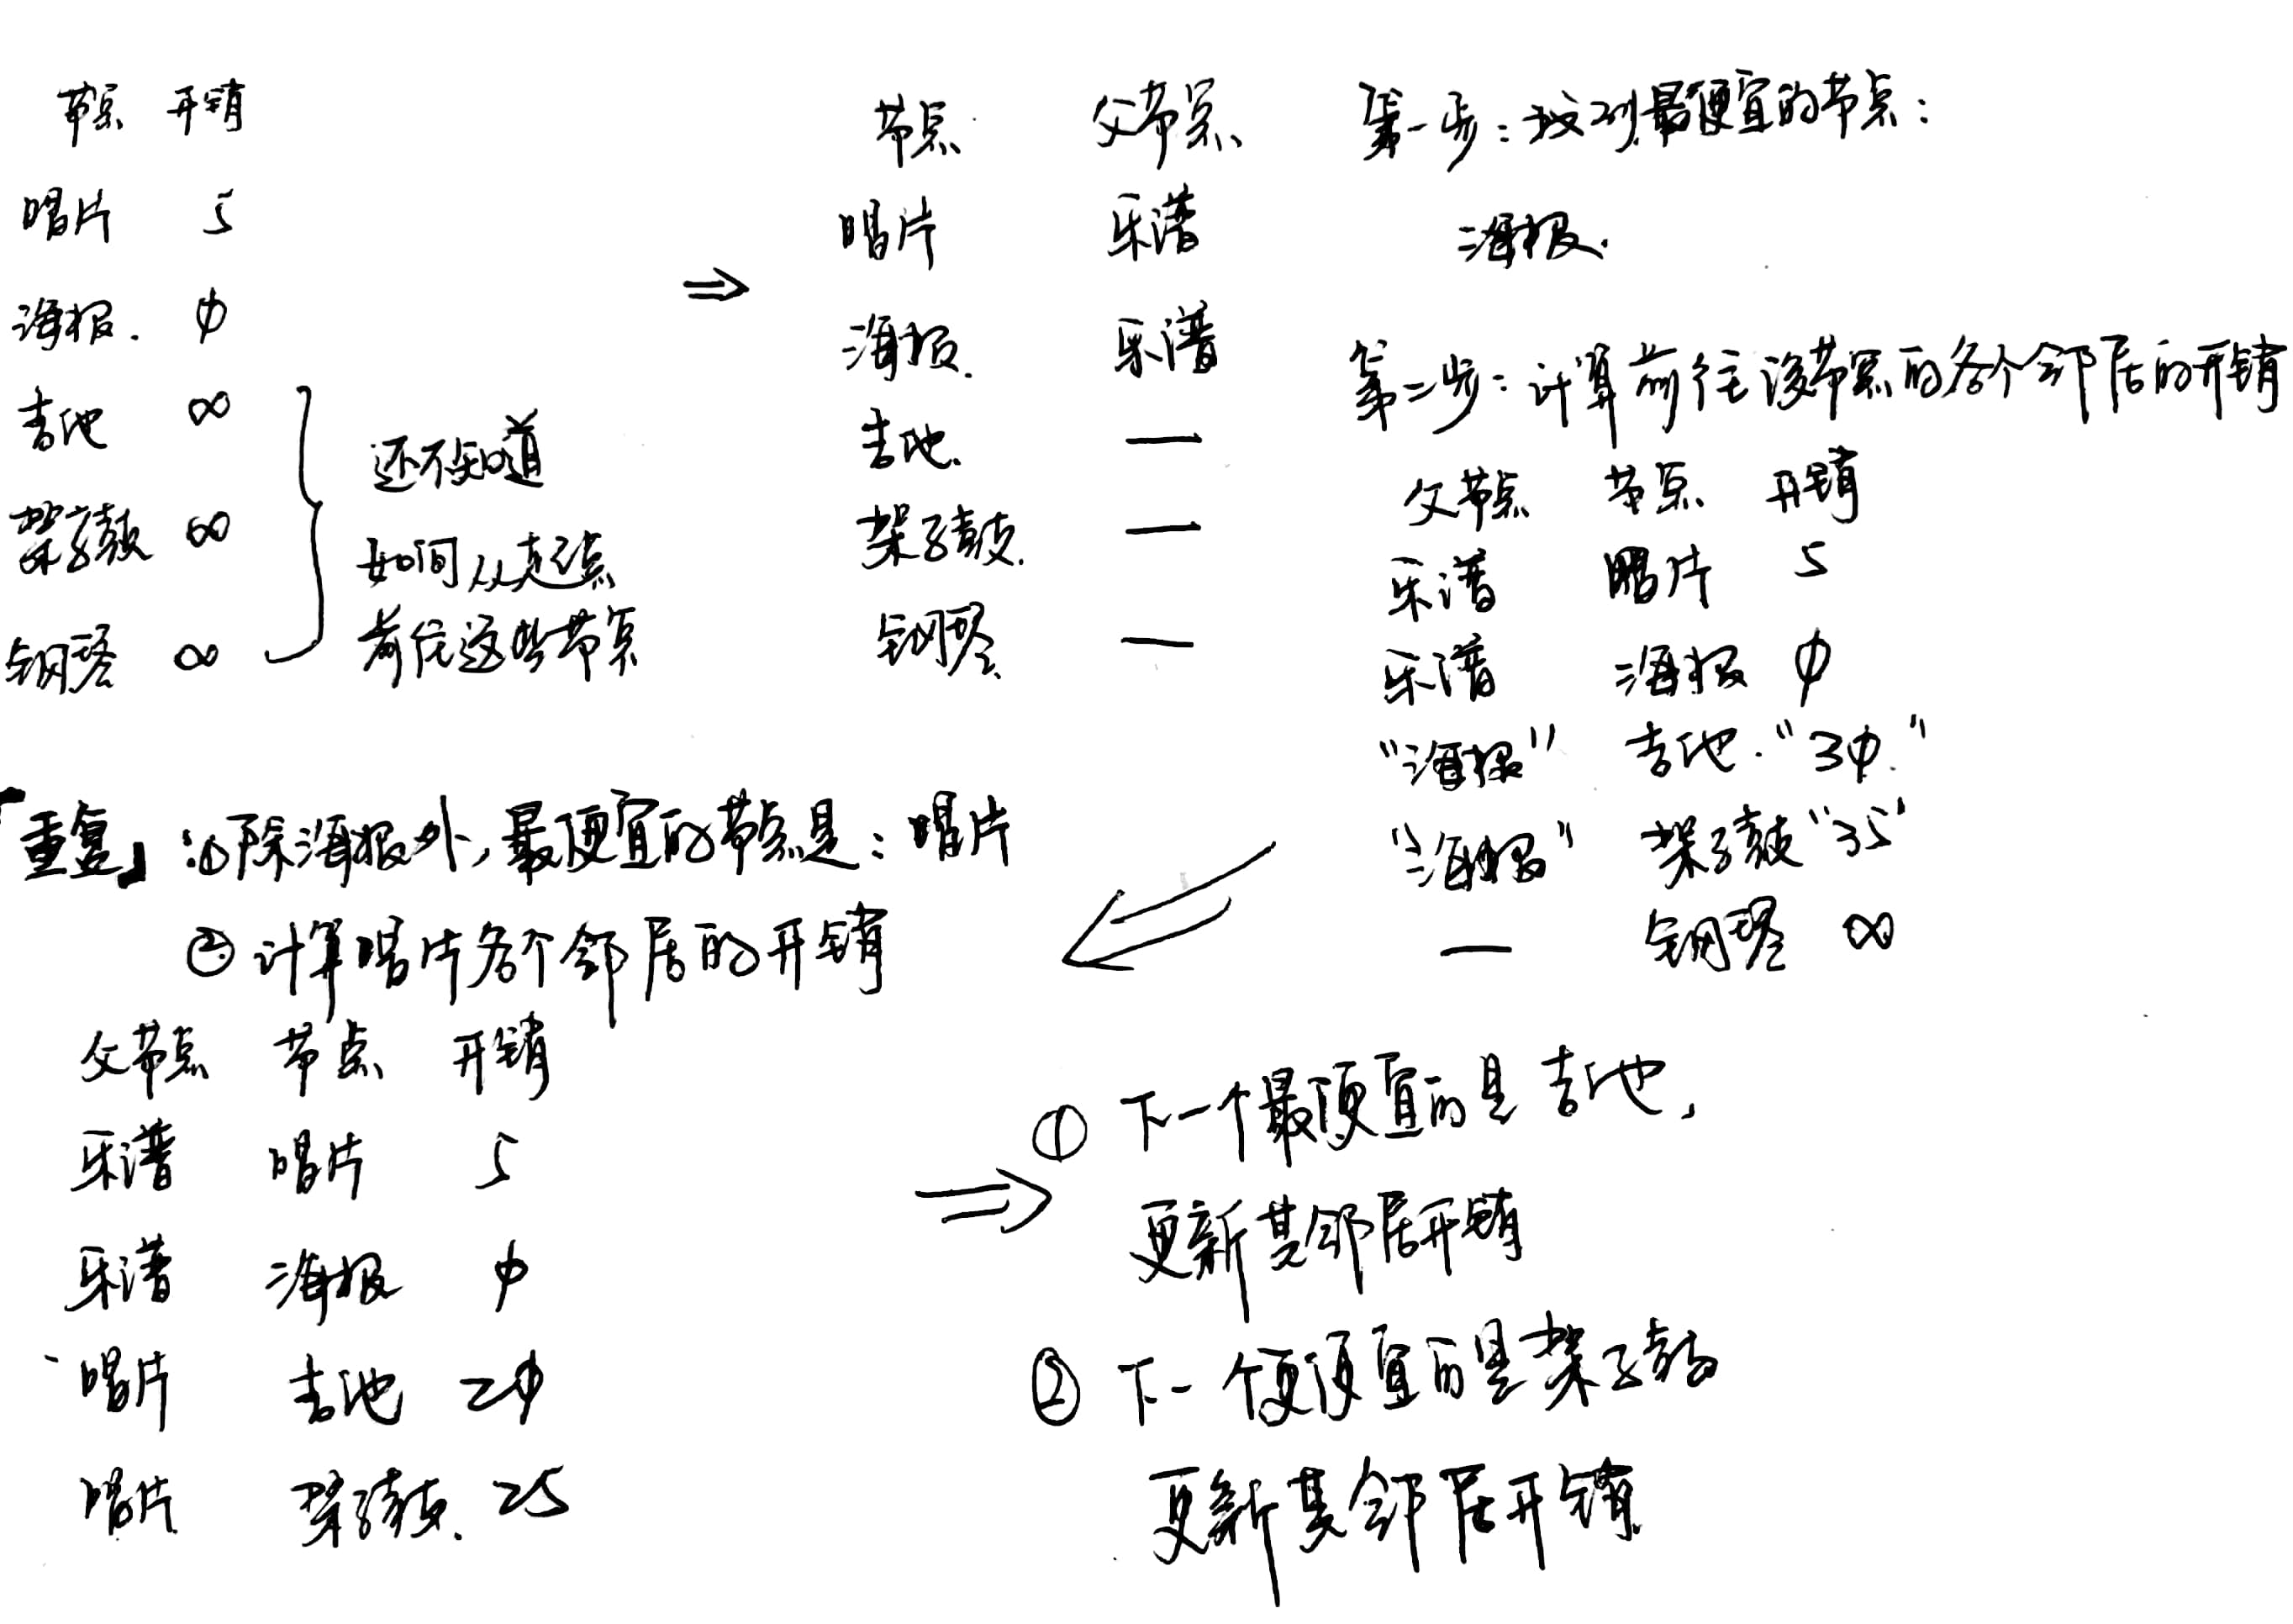 节点 开销
唱片 5
海报. 0
吉池 ∞
架子鼓 ∞
钢琴 ∞
还不知道
如何从起点
前往这些节点
⇒
节点 父节点
唱片 乐谱
海报. 乐谱
吉池. —
架子鼓. —
钢琴 —
第一步:找到最便宜的节点:
海报.
第二步:计算前往该节点的各个邻居的开销
父节点 节点 开销
乐谱 唱片 5
乐谱 海报 0
"海报" 吉池. "30."
"海报" 架子鼓 "35"
— 钢琴 ∞
「重复」:①除海报外,最便宜的节点是:唱片
② 计算唱片各个邻居的开销
父节点 节点 开销
乐谱 唱片 5
乐谱 海报 0
唱片 吉池 20
唱片 架子鼓. 25
⇒
① 下一个最便宜的是吉池,
更新其邻居开销
② 下一个便便宜的是架子鼓
更新其邻居开销